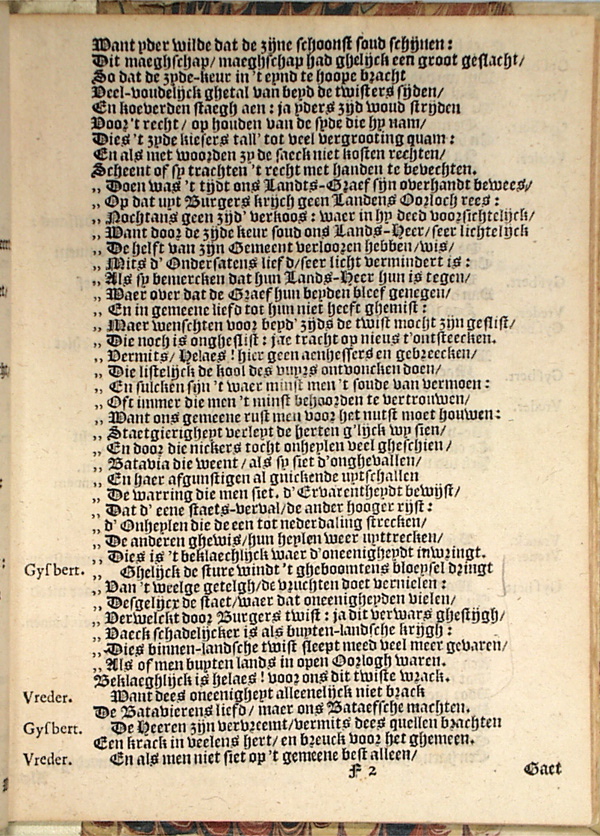 Want yder wilde dat de zijne schoonst soud schijnen:
Dit maeghschap/ maeghschap had ghelijck een groot geslacht/
So dat de zyde-keur in 't eynd te hoope bracht
Veel-voudelijck ghetal van beyd de twisters syden/
En koeverden staegh aen: ja yders zijd woud strijden
Voor 't recht/ op houden van de syde die hy nam/
Dies 't zyde kiesers tall' tot veel vergrooting quam:
En als met woorden zy de saeck niet kosten rechten/
Scheent of sy trachten 't recht met handen te bevechten.
,, Doen was 't tijdt ons Landts-Graef sijn overhandt bewees/
,, Op dat uyt Burgers krijch geen Landens Oorloch rees:
,, Nochtans geen zijd' verkoos: waer in hy deed voorsichtelijck/
,, Want door de zijde keur soud ons Lands-Heer/ seer lichtelijck
,, De helft van zijn Gemeent verlooren hebben/ wis/
,, Mits d' Ondersatens lief d/ seer licht vermindert is:
,, Als sy bemercken dat hun Lands-Heer hun is tegen/
,, Waer over dat de Graef hun beyden bleef genegen/
,, En in gemeene liefd tot hun niet heeft ghemist:
,, Maer wenschten voor beyd' zijds de twist mocht zijn geslist/
,, Die noch is onghestist: jae tracht op nieus t'ontsteecken.
,, Vermits/ Helaes! hier geen aenhessers en gebreecken/
,, Die listelijck de kool des vuyrs ontvoncken doen/
,, En sulcken sijn 't waer minst men 't soude van vermoen:
,, Oft immer die men 't minst behoorden te vertrouwen/
,, Want ons gemeene rust men voor het nutst moet houwen:
,, Staetgierigheyt verleyt de herten g'lijck wy sien/
,, En door die nickers tocht onheylen veel gheschien/
,, Batavia die weent/ als sy siet d'onghevallen/
,, En haer afgunstigen al gnickende uytschallen
,, De warring die men siet. d'Ervarentheydt bewijst/
,, Dat d' eene staets-verval/ de ander hooger rijst:
,, d' Onheylen die de een tot nederdaling strecken/
,, De anderen ghewis/ hun heylen weer uyttrecken/
,, Dies is 't beklaechlijck waer d'oneenigheydt inwringt.
Gysbert. ,, Ghelijck de sture windt 't gheboomtens bloeysel dringt
,, Van 't weelge getelgh/ de vruchten doet vernielen:
,, Desgelijcx de staet/ waer dat oneenigheyden vielen/
,, Verwelckt door Burgers twist: ja dit verwars ghestijgh/
,, Vaeck schadelijcker is als buyten-landsche krijgh:
,, Dies binnen-landsche twist sleept meed veel meer gevaren/
,, Als of men buyten lands in open Oorlogh waren.
Beklaeghlijck is helaes! voor ons dit twiste wrack.
Vreder. Want dees oneenigheyt alleenelijck niet brack
De Batavierens liefd/ maer ons Bataefsche machten.
Gysbert. De Heeren zijn vervreemt/ vermits dees quellen brachten
Een krack in veelens hert/ en breuck voor het ghemeen.
Vreder. En als men niet siet op 't gemeene best alleen/
F 2 Gaet